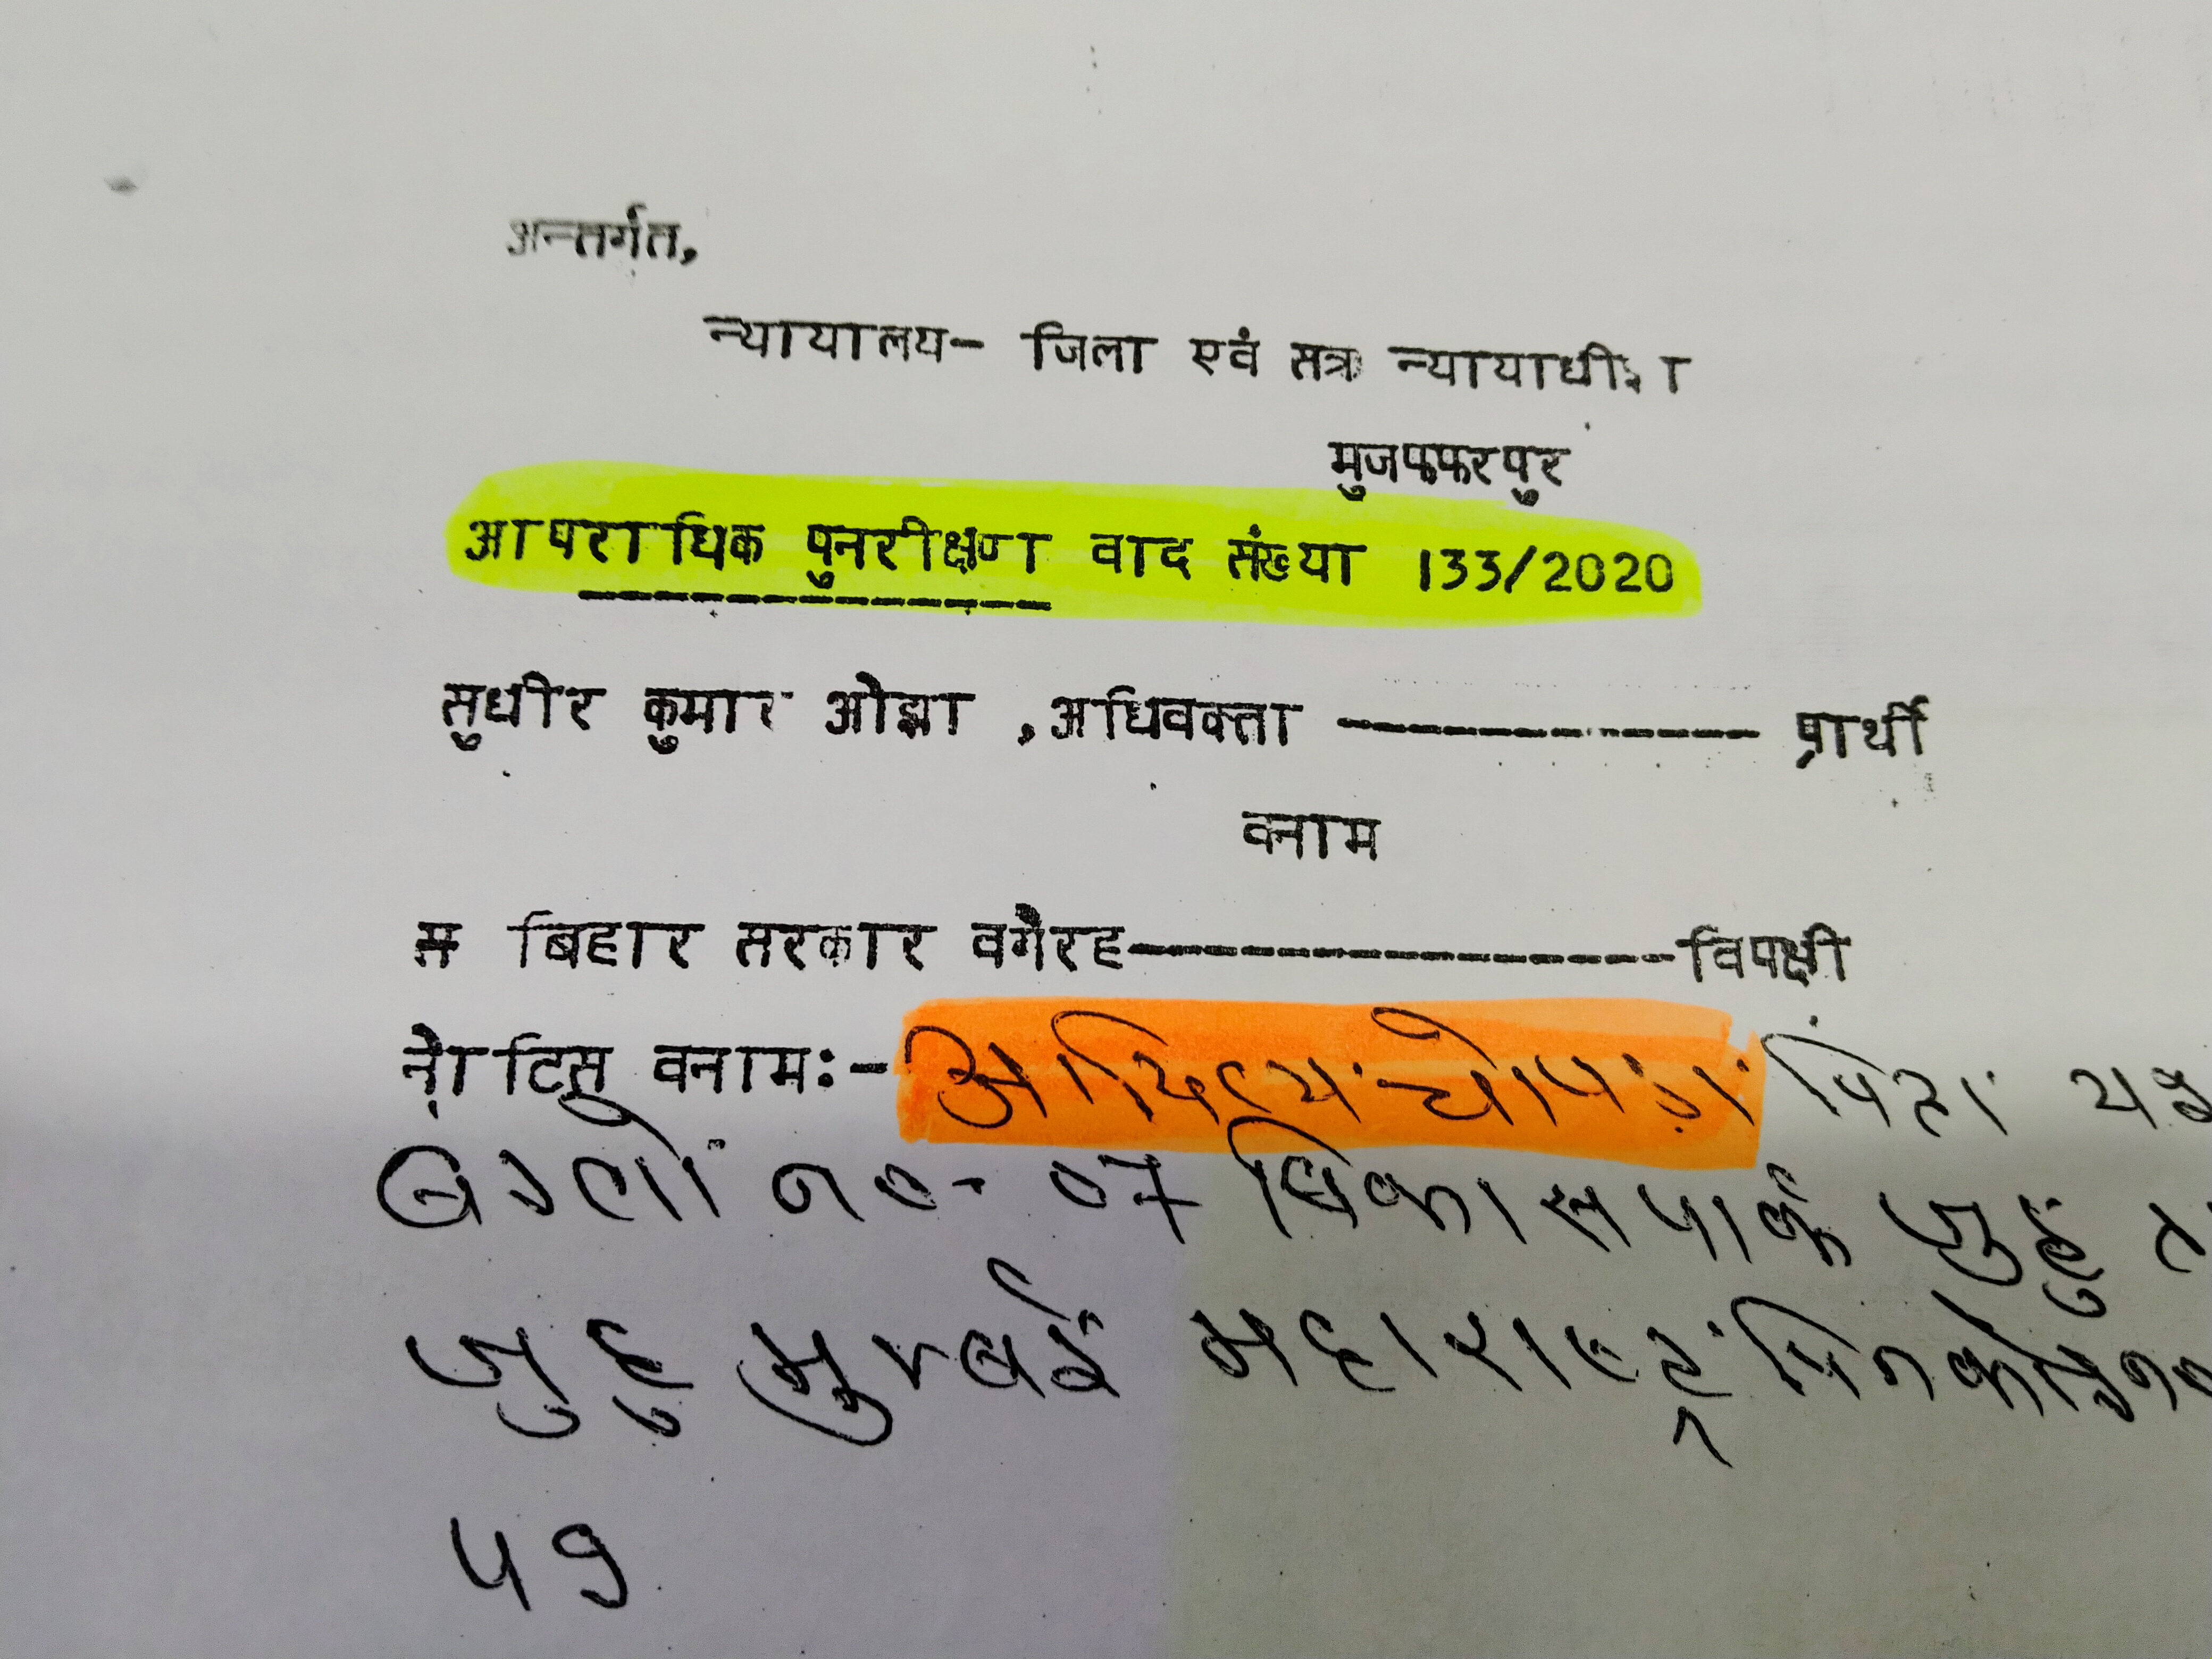 अन्तर्गत,
न्यायालय- जिला एवं सत्र न्यायाधीश
मुजफ्फरपुर
आपराधिक पुनरीक्षण वाद संख्या 133/2020
सुधीर कुमार ओझा ,अधिवक्ता ------------ प्रार्थी
वनाम
बिहार सरकार वगैरह---------------विपक्षी
नोटिस वनाम:- आदित्य चोपड़ा पिता
बंगलो न०- 07 विकास पार्क जुहु
जुहु मुम्बई महाराष्ट्र पिनकोड
49